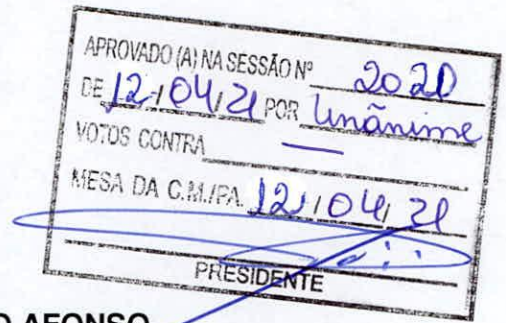 APROVADO (A) NA SESSÃO Nº 2020
DE 12/04/21 POR Unânime
VOTOS CONTRA —
MESA DA C.M./PA. 12/04/21
PRESIDENTE
O AFONSO